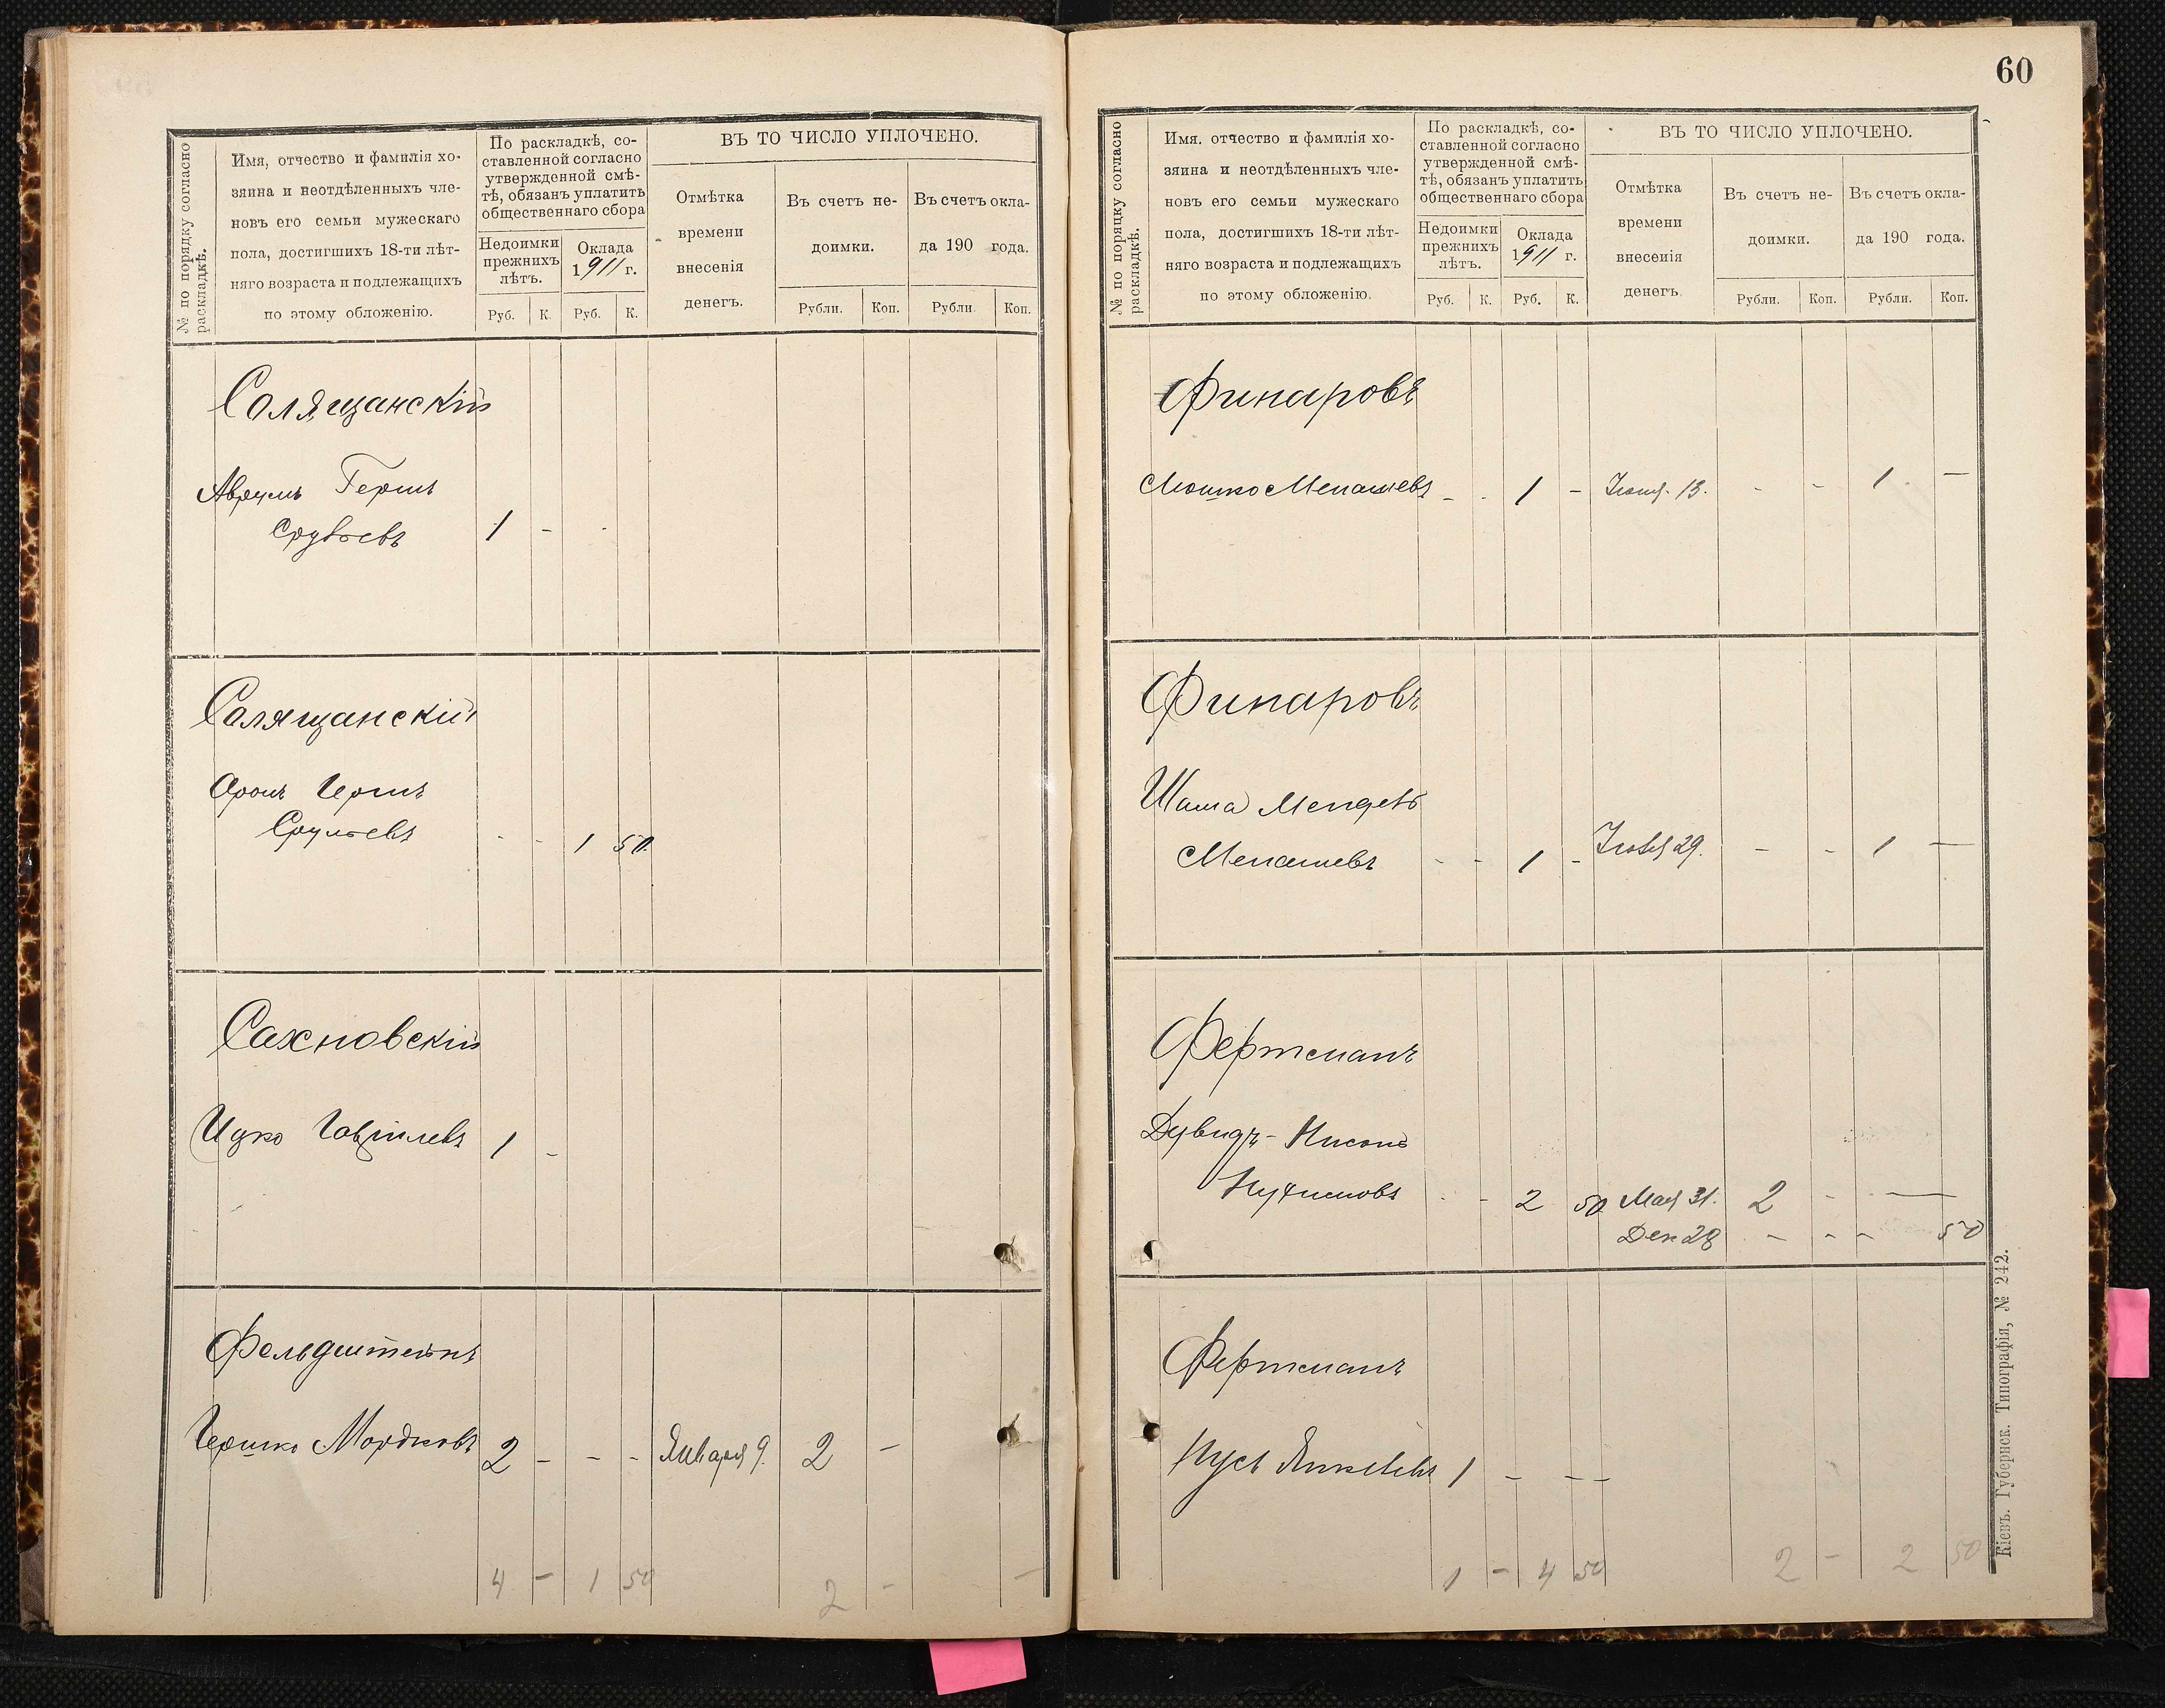 № по порядку согласно
раскладкѣ.
Имя, отчество и фамилія хо-
зяина и неотдѣленныхъ чле-
новъ его семьи мужескаго
пола, достигшихъ 18-ти лѣт-
няго возраста и подлежащихъ
по этому обложенію.
По раскладкѣ, со-
ставленной согласно
утвержденной смѣ-
тѣ, обязанъ уплатить
общественнаго сбора
Недоимки
прежнихъ
лѣтъ.
Оклада
1911 г.
Руб. К. Руб. К.
ВЪ ТО ЧИСЛО УПЛОЧЕНО.
Отмѣтка
времени
внесенія
денегъ.
Въ счетъ не-
доимки.
Въ счетъ окла-
да 190 года.
Рубли. Коп. Рубли Коп.
Солящанскій
Аврумъ Гершъ
Срулевъ 1 -
Солящанскій
Аронъ Гершъ
Срульевъ - - 1 50
Сахновскій
Ицко 1 -
Фельдштейнъ
Гершко Мордковъ 2 - - - Января 9. 2 -
4 - 1 50 2 - -
60
№ по порядку согласно
раскладкѣ.
Имя. отчество и фамилія хо-
зяина и неотдѣленныхъ чле-
новъ его семьи мужескаго
пола, достигшихъ 18-ти лѣт-
няго возраста и подлежащихъ
по этому обложенію.
По раскладкѣ, со-
ставленной согласно
утвержденной смѣ-
тѣ, обязанъ уплатить
общественнаго сбора
Недоимки
прежнихъ
лѣтъ.
Оклада
1911 г.
Руб. К. Руб. К.
ВЪ ТО ЧИСЛО УПЛОЧЕНО.
Отмѣтка
времени
внесенія
денегъ.
Въ счетъ не-
доимки.
Въ счетъ окла-
да 190 года.
Рубли. Коп. Рубли. Коп.
Финаровъ
Мошко Менашевъ - - 1 - 13. - - 1 -
Финаровъ
Шама Мендель
Менашевъ - - 1 - 29. - - 1 -
Фертманъ
Дувидъ-Нисонъ
- - 2 50 Мая 31. 2 - -
Дек 28 - - - 50
Фертманъ
Нусъ Янкелевъ 1 - - -
1 - 4 50 2 - 2 50
Кіевъ. Губернск. Типографія, № 242.